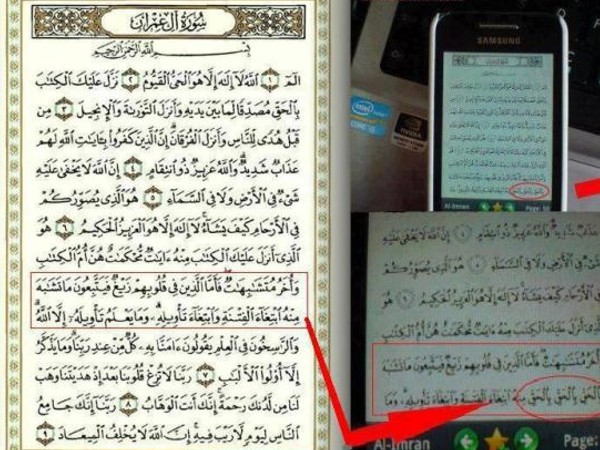 سُورَةُ آلِ عِمْرَانَ
بِسْمِ اللَّهِ الرَّحْمَٰنِ الرَّحِيمِ
الٓمٓ ١ اللَّهُ لَا إِلَٰهَ إِلَّا هُوَ الْحَيُّ الْقَيُّومُ ٢ نَزَّلَ عَلَيْكَ الْكِتَٰبَ
بِالْحَقِّ مُصَدِّقًا لِّمَا بَيْنَ يَدَيْهِ وَأَنزَلَ التَّوْرَىٰةَ وَالْإِنجِيلَ ٣ مِن
قَبْلُ هُدًى لِّلنَّاسِ وَأَنزَلَ الْفُرْقَانَ إِنَّ الَّذِينَ كَفَرُوا بِـَٔايَٰتِ اللَّهِ لَهُمْ
عَذَابٌ شَدِيدٌ وَاللَّهُ عَزِيزٌ ذُو انتِقَامٍ ٤ إِنَّ اللَّهَ لَا يَخْفَىٰ عَلَيْهِ
شَيْءٌ فِي الْأَرْضِ وَلَا فِي السَّمَآءِ ٥ هُوَ الَّذِي يُصَوِّرُكُمْ
فِي الْأَرْحَامِ كَيْفَ يَشَآءُ لَا إِلَٰهَ إِلَّا هُوَ الْعَزِيزُ الْحَكِيمُ ٦ هُوَ
الَّذِي أَنزَلَ عَلَيْكَ الْكِتَٰبَ مِنْهُ ءَايَٰتٌ مُّحْكَمَٰتٌ هُنَّ أُمُّ الْكِتَٰبِ
وَأُخَرُ مُتَشَٰبِهَٰتٌ فَأَمَّا الَّذِينَ فِي قُلُوبِهِمْ زَيْغٌ فَيَتَّبِعُونَ مَا تَشَٰبَهَ
مِنْهُ ابْتِغَآءَ الْفِتْنَةِ وَابْتِغَآءَ تَأْوِيلِهِ وَمَا يَعْلَمُ تَأْوِيلَهُ إِلَّا اللَّهُ
وَالرَّٰسِخُونَ فِي الْعِلْمِ يَقُولُونَ ءَامَنَّا بِهِ كُلٌّ مِّنْ عِندِ رَبِّنَا وَمَا يَذَّكَّرُ
إِلَّا أُولُوا الْأَلْبَٰبِ ٧ رَبَّنَا لَا تُزِغْ قُلُوبَنَا بَعْدَ إِذْ هَدَيْتَنَا وَهَبْ
لَنَا مِن لَّدُنكَ رَحْمَةً إِنَّكَ أَنتَ الْوَهَّابُ ٨ رَبَّنَا إِنَّكَ جَامِعُ
النَّاسِ لِيَوْمٍ لَّا رَيْبَ فِيهِ إِنَّ اللَّهَ لَا يُخْلِفُ الْمِيعَادَ ٩
SAMSUNG
intel
NVIDIA
Al-Imran
Page: 50
عَذَابٌ شَدِيدٌ وَاللَّهُ عَزِيزٌ ذُو انتِقَامٍ ٤ إِنَّ اللَّهَ لَا يَخْفَىٰ عَلَيْهِ
شَيْءٌ فِي الْأَرْضِ وَلَا فِي السَّمَآءِ ٥ هُوَ الَّذِي يُصَوِّرُكُمْ
فِي الْأَرْحَامِ كَيْفَ يَشَآءُ لَا إِلَٰهَ إِلَّا هُوَ الْعَزِيزُ الْحَكِيمُ ٦ هُوَ
الَّذِي أَنزَلَ عَلَيْكَ الْكِتَٰبَ مِنْهُ ءَايَٰتٌ مُّحْكَمَٰتٌ هُنَّ أُمُّ الْكِتَٰبِ
أُخَرُ مُتَشَٰبِهَٰتٌ فَأَمَّا الَّذِينَ فِي قُلُوبِهِمْ زَيْغٌ فَيَتَّبِعُونَ مَا تَشَٰبَهَ
بِالْحَقِّ بِالْحَقِّ بِالْحَقِّ مِنْهُ ابْتِغَآءَ الْفِتْنَةِ وَابْتِغَآءَ تَأْوِيلِهِ وَمَا
Al-Imran
Page: